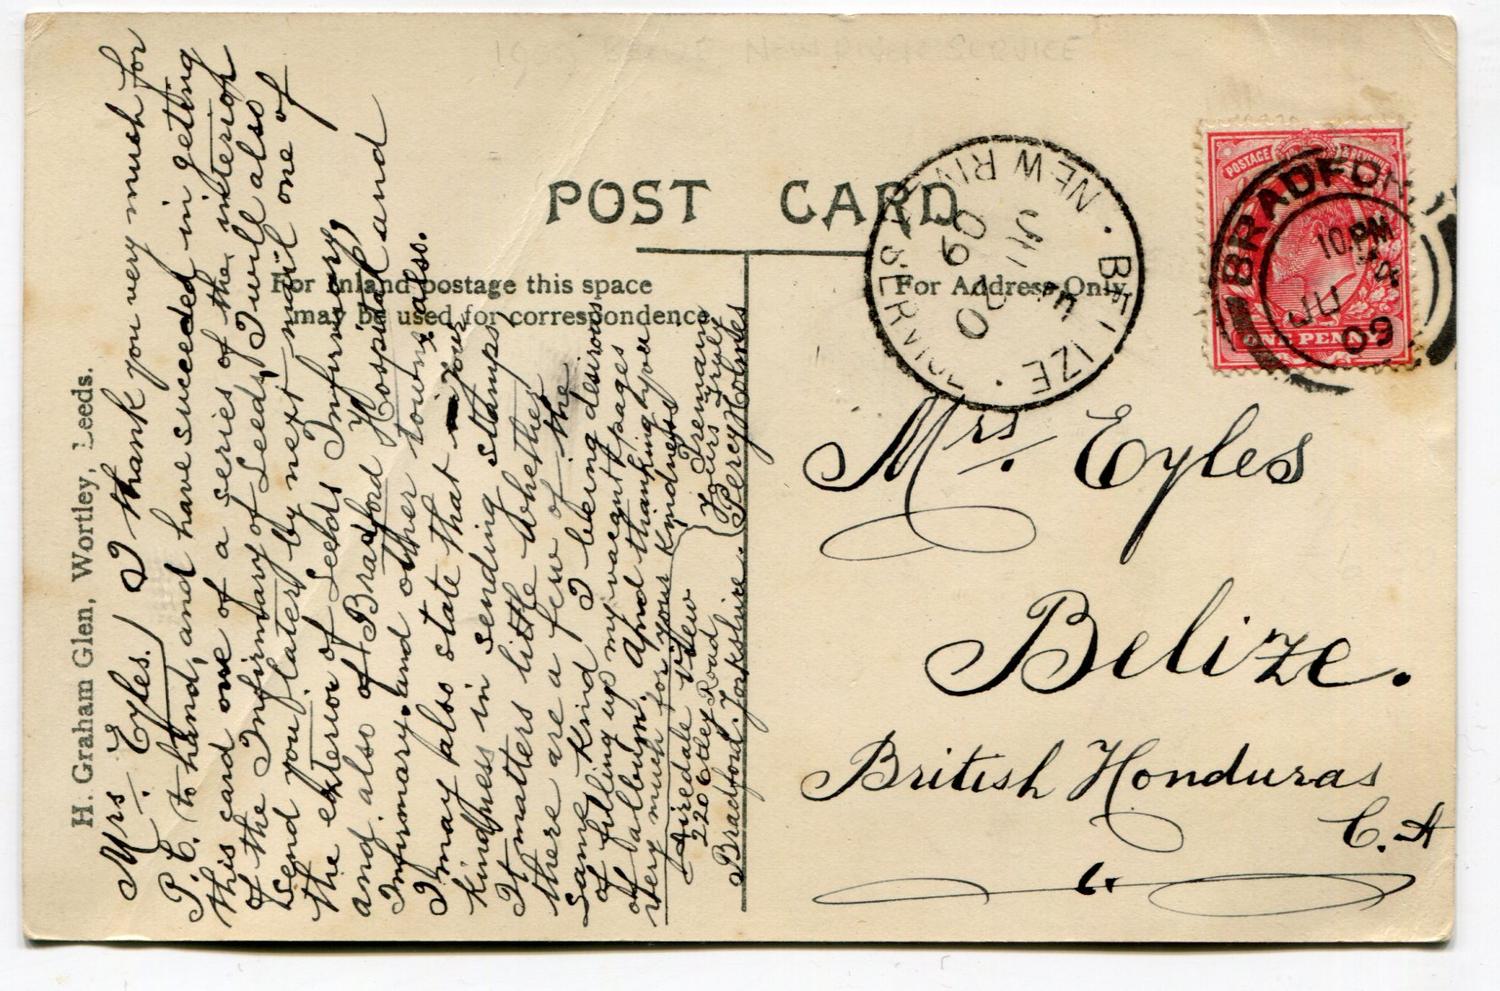 POST CARD
For inland postage this space
may be used for correspondence.
For Address Only.
H. Graham Glen, Wortley, Leeds.
Mrs. Eyles.) I thank you very much for
P.C. to hand, and have succeeded in getting
this card one of a series of the interior
of the Infirmary of Leeds, I will also
send you later by next mail one of
the exterior of Leeds Infirmary
and also of Bradford Hospital and
Infirmary. and other towns also.
I may also state that your
kindness in sending stamps,
It matters little whether
there are a few of the
same kind I being desirous
of filling up my vacant pages
of album. And thanking you
very much for your kindness
I remain
Yours Truly
Percy Holmes
Airedale View
220 Otley Road
Bradford. Yorkshire.
Mrs. Eyles
Belize.
British Honduras
C.A
NEW RIVER SERVICE
BELIZE
JU
09
POSTAGE & REVENUE
ONE PENNY
BRADFORD
10.PM
JU
09
NEW RIVER SERVICE